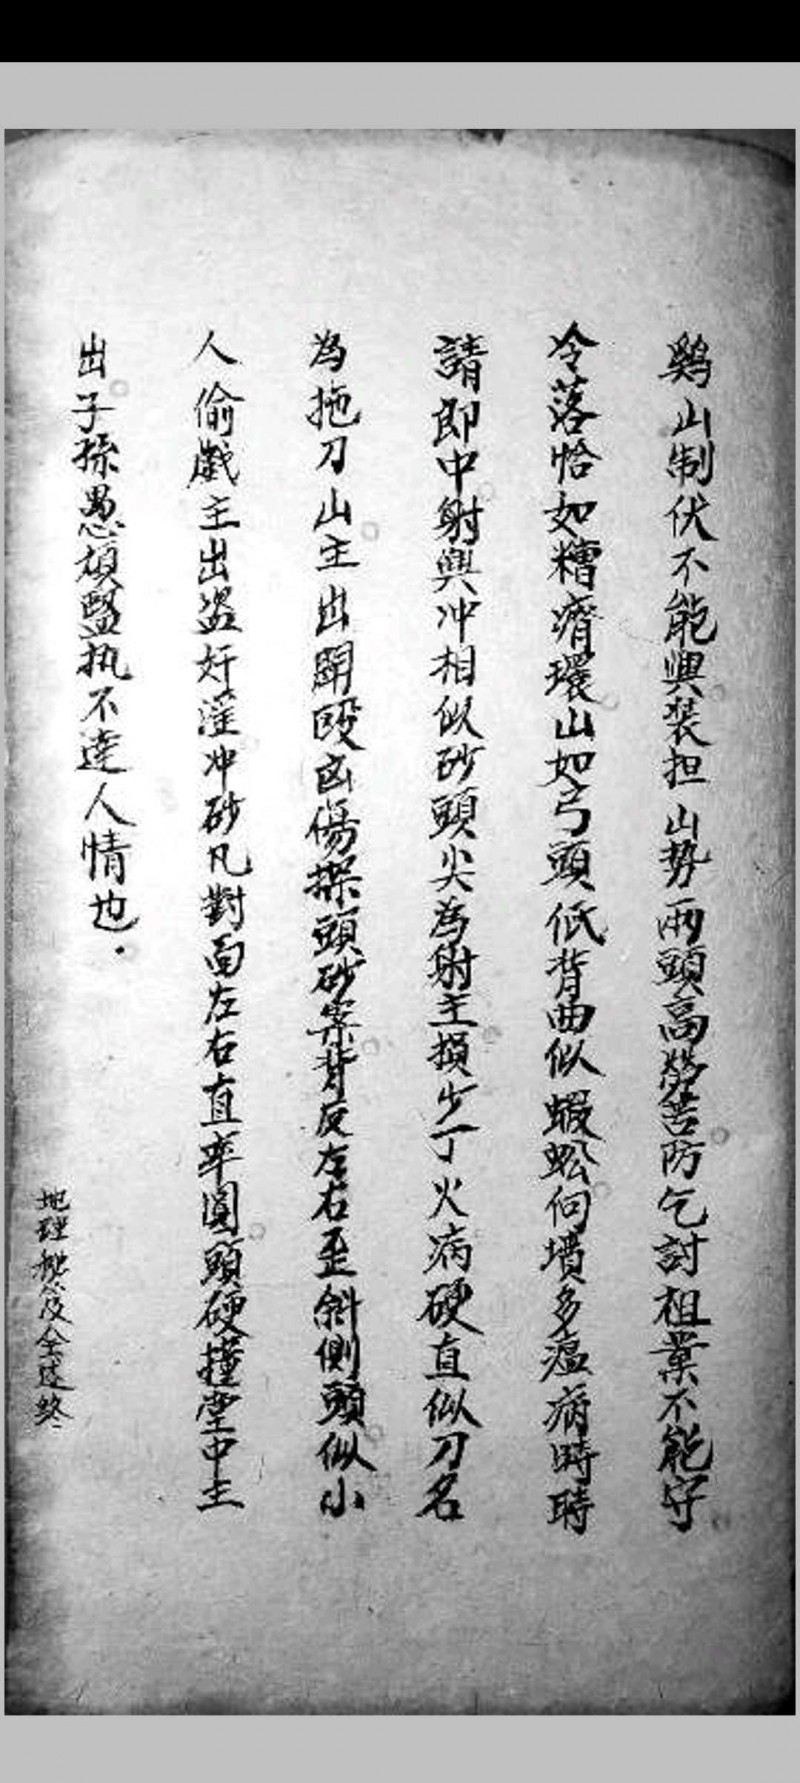 鷄山制伏不能興装担山势兩頭高勞苦防乞討祖業不能守
冷落恰如糟濟環山如弓頭低背曲似蝦蚣何墳多瘟病時時
請即中射與冲相似砂頭尖為射主損少丁火病硬直似刀名
為拖刀山主出鬪毆凶傷探頭砂案背反左右歪斜側頭似小
人偷戲主出盗奸淫冲砂凡對面左右直率圓頭硬撞堂中主
出子孫愚頑堅执不達人情也.
地理秘笈全述終